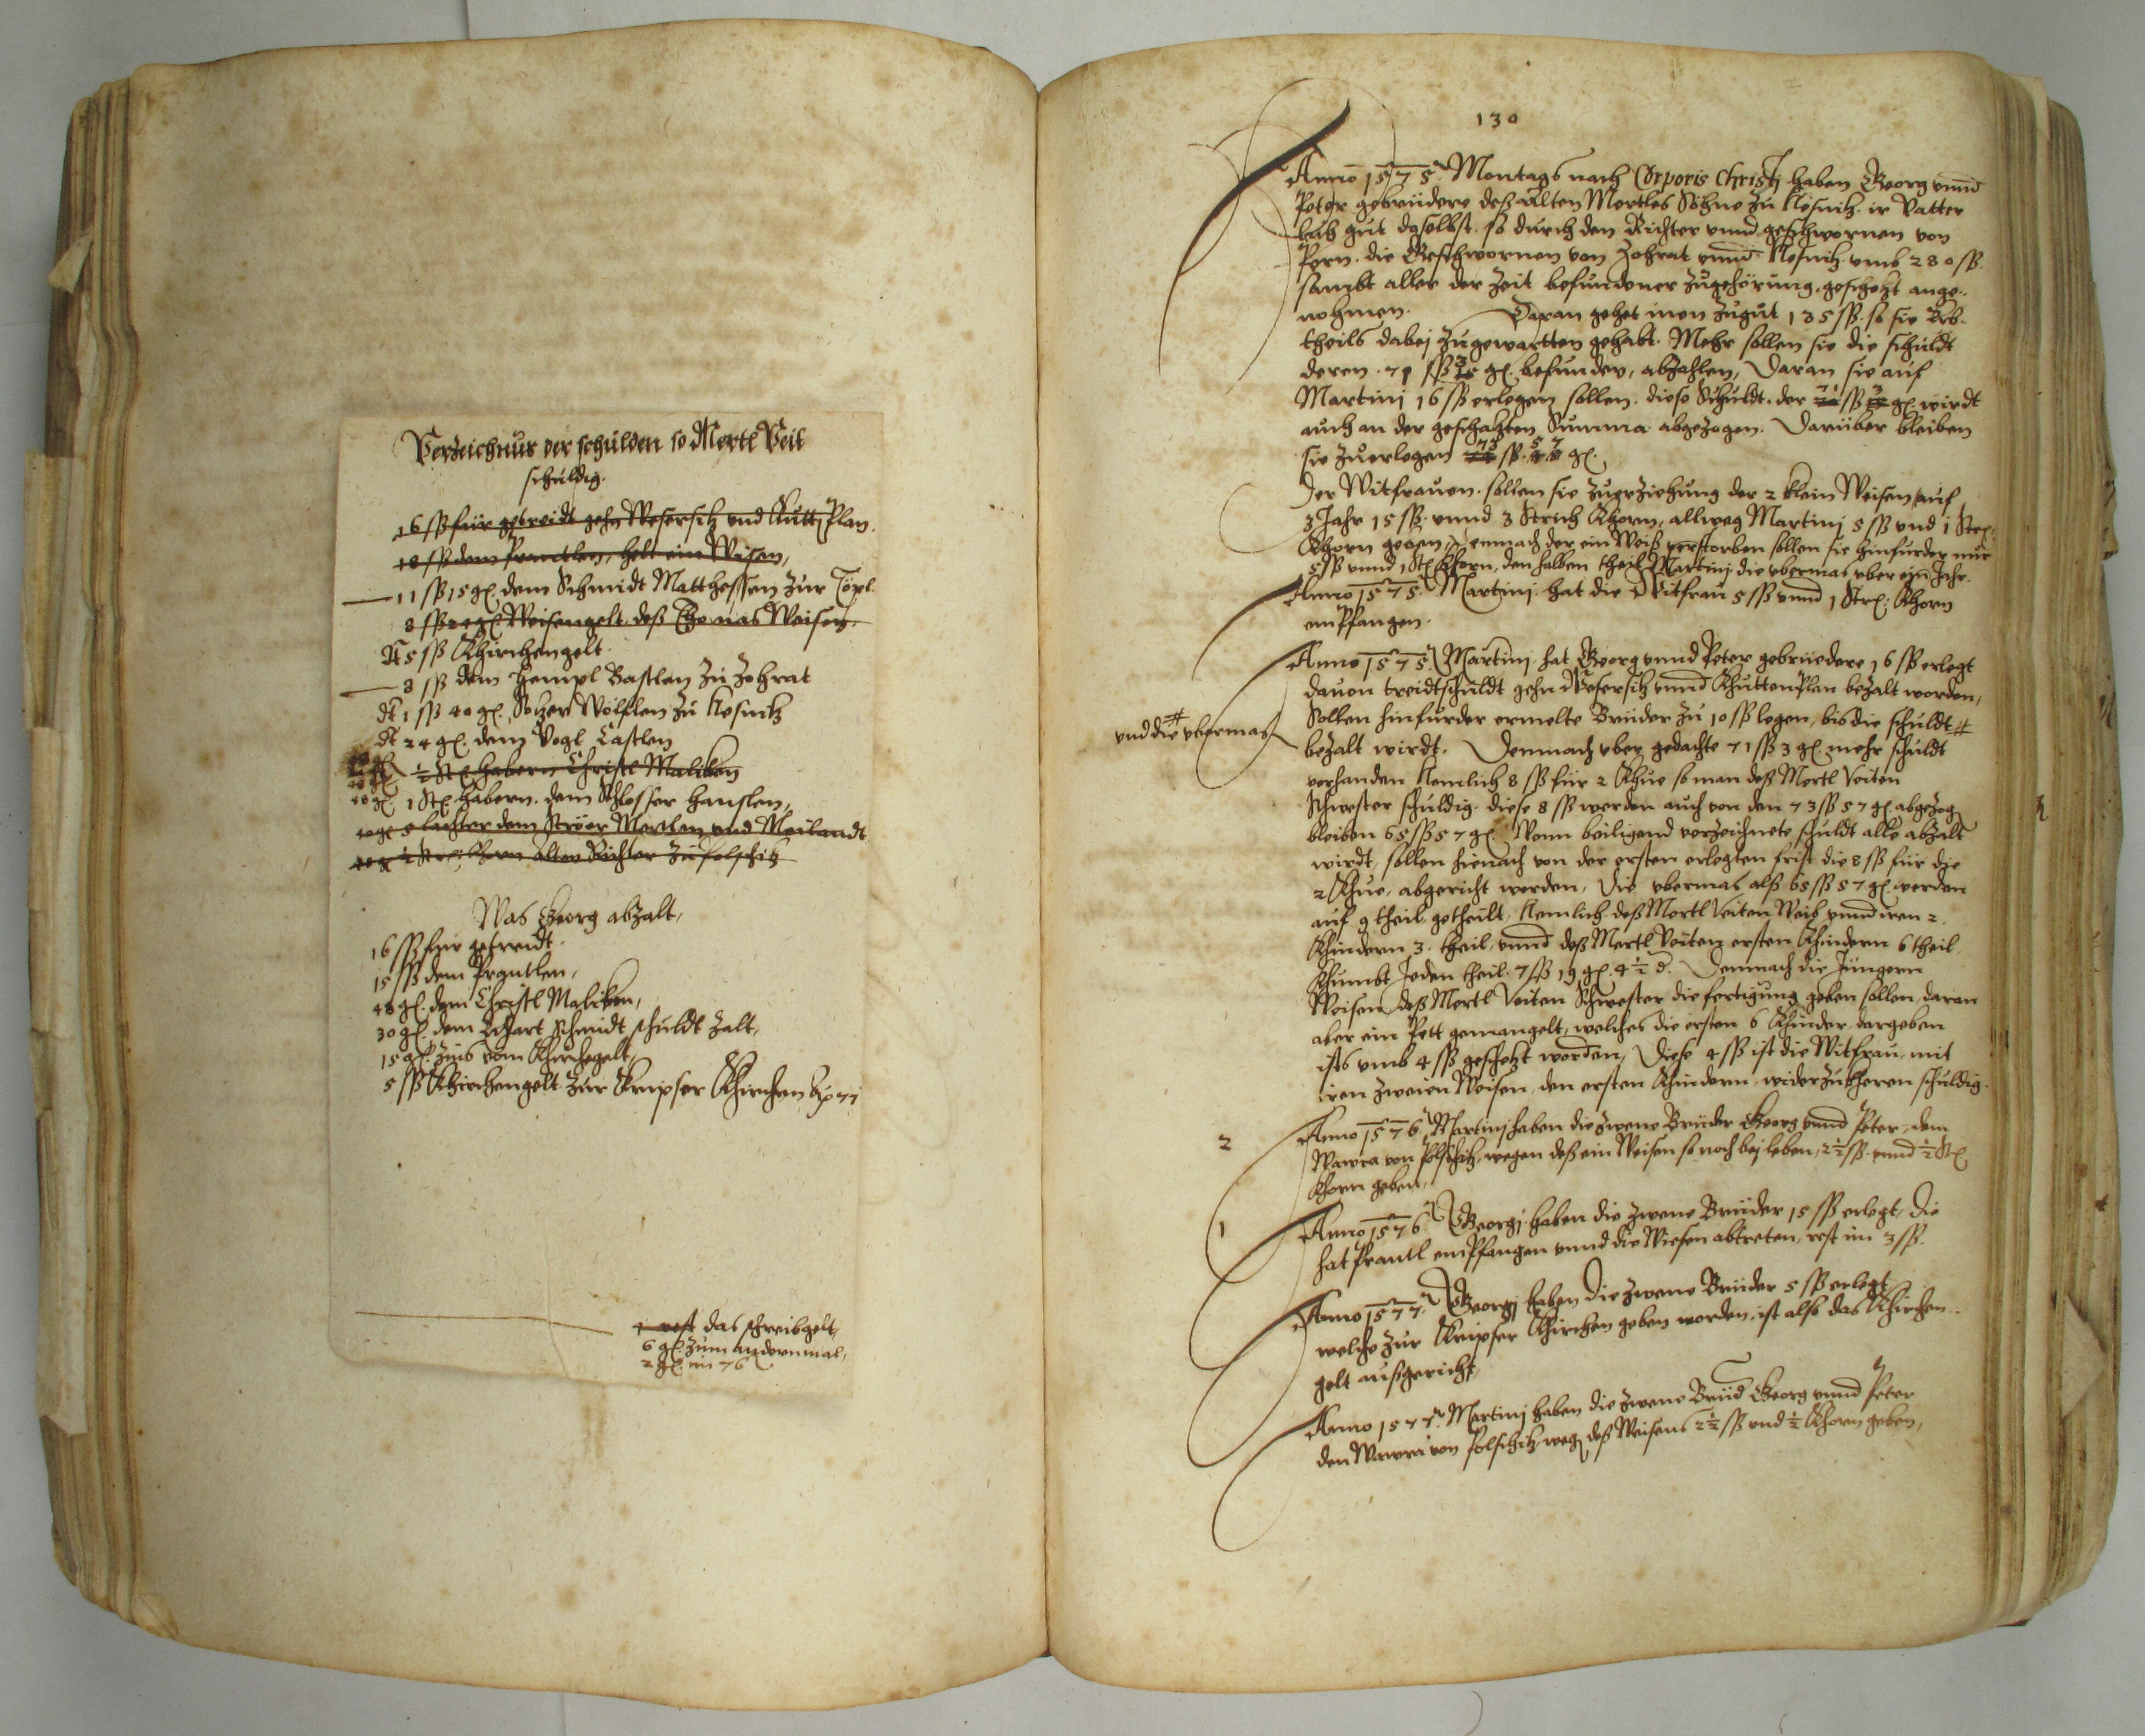 Verzeichnus der schulden so Mertl Veit
schuldig.
16 ßß für getreidt gehn Weseritz und Kuttplan.
18 ßß dem Prantlen, helt ein Wisen,
11 ßß 15 gl. dem Schmidt Matthessen zur Töpl.
8 ßß 20 gl. Weisengelt deß Thomas Weisen.
dt 5 ßß Khirchengelt.
8 ßß dem Hempl Bastlen zu Zohrat
dt 1 ßß 40 gl. Wölflen zu Kosnitz
dt 24 gl. dem Vogl Castlen
½ St. habern Christl Maliken
1 St. habern. dem Schlosser Hanslen,
Mertlen und Meilandt
½ Str. Khorn alten Richter zu Polschitz
Was Georg abzalt,
16 ßß für getreidt.
15 ßß dem Prantlen,
48 gl. dem Christl Maliken,
30 gl. dem Eckhart Schmidt schuldt zalt,
15 gl. Zins vom Khirchegelt,
5 ßß Khirchengelt zur Kripser Khirchen 77
rest das schreibgelt,
6 gl. zum andernmal,
2 gl. im 76
130
Anno 1575. Montags nach Corporis Christj haben Georg vnnd
Peter gebrüdere deß alten Mertles Söhne zu Kosnitz. ir Vatter
gut doselbst. so durch den Richter vnnd geschwornen von
Pern. die Geschwornen von Zohrat vnnd Kosnitz vmb 280 ßß.
sambt aller der Zeit befundener zugehörung, geschetzt ange-
nohmen. Daran gehet inen zugut 135 ßß. so sie Erb-
theils dabej zugewartten gehabt. Mehr sollen sie die schuldt
deren. 71 ßß 3 gl. befunden, abzahlen, Daran sie auf
Martinj 16 ßß erlegen sollen. diese Schuldt. der 71 ßß 3 gl. wirdt
auch an der geschatzten Summa abgezogen. Darüber bleiben
sie zuerlegen 73 ßß. 57 gl.
Der Witfrauen. sollen sie zuerziehung der 2 klein Weisen, auf
3 Jahr 15 ßß. vnnd 3 Strich Khorn, allweg Martinj 5 ßß vnd 1 Str.
Khorn geben, Demnach der ein Weiß verstorben sollen sie hinfurder nur
5 ßß vnnd 1 St. Khorn, den halben theil Martinj die vbermas vber ein Jahr.
Anno 1575. Martinj. hat die Witfrau 5 ßß vnnd 1 Str. Khorn
empfangen.
Anno 1575. Martinj hat Georg vnnd Peter gebrüedere 16 ßß erlegt
dauon treidtschuldt gehn Weseritz vnnd Khuttenplan bezalt worden,
Sollen hinfürder ermelte Brüder zu 10 ßß legen, bis die schuldt #
# vnd die vbermas
bezalt wirdt. Demnach vber gedachte 71 ßß 3 gl. mehr schuldt
verhanden Nemlich 8 ßß für 2 Khue so man deß Mertl Veiten
Schwester schuldig. diese 8 ßß werden auch von den 73 ßß 57 gl. abgezog
bleiben 65 ßß 57 gl. Wenn beiligend verzeichnete schuldt alle abzalt
wirdt, sollen hienach von der ersten erlegten frist die 8 ßß für die
2 Khue, abgericht werden, Die vbermas alß 65 ßß 57 gl. werden
auf 9 theil getheilt, Nemlich deß Mertl Veiten Weib vnnd iren 2.
Khindern 3. theil, vnnd deß Mertl Veiten ersten Khindern 6 theil
Khumbt Jeden theil. 7 ßß 19 gl. 4 ½ d. Demnach die Jüngern
Weisen deß Mertl Veiten Schwester die fertigung geben sollen, daran
aber ein Pett gemangelt, welches die ersten 6 Khinder dargeben
ists vmb 4 ßß geschetzt worden, Diese 4 ßß ist die Witfrau, mit
iren zweien Weisen, den ersten Khindern widerzukheren schuldig.
2
Anno 1576 Martinj haben die zwene Brüder Georg vnnd Peter, dem
Wawra von Polschitz, wegen deß ein Weisen so noch bej leben, 2½ ßß. vnnd ½ St.
Khorn geben,
1
Anno 1576. Georgj haben die zwene Brüder 15 ßß erlegt, Die
hat Prantl empfangen vnnd die Wiesen abtreten, rest im 3 ßß.
Anno 1577. Georgj haben die zwene Brüder 5 ßß erlegt
welche zur Kripser Khirchen geben worden, ist also das Khirchen-
gelt außgericht,
Anno 1577. Martinj haben die zwene Brüd Georg vnnd Peter
den Wawra von Polschitz, weg deß Weisens 2½ ßß vnd ½ Khorn geben,